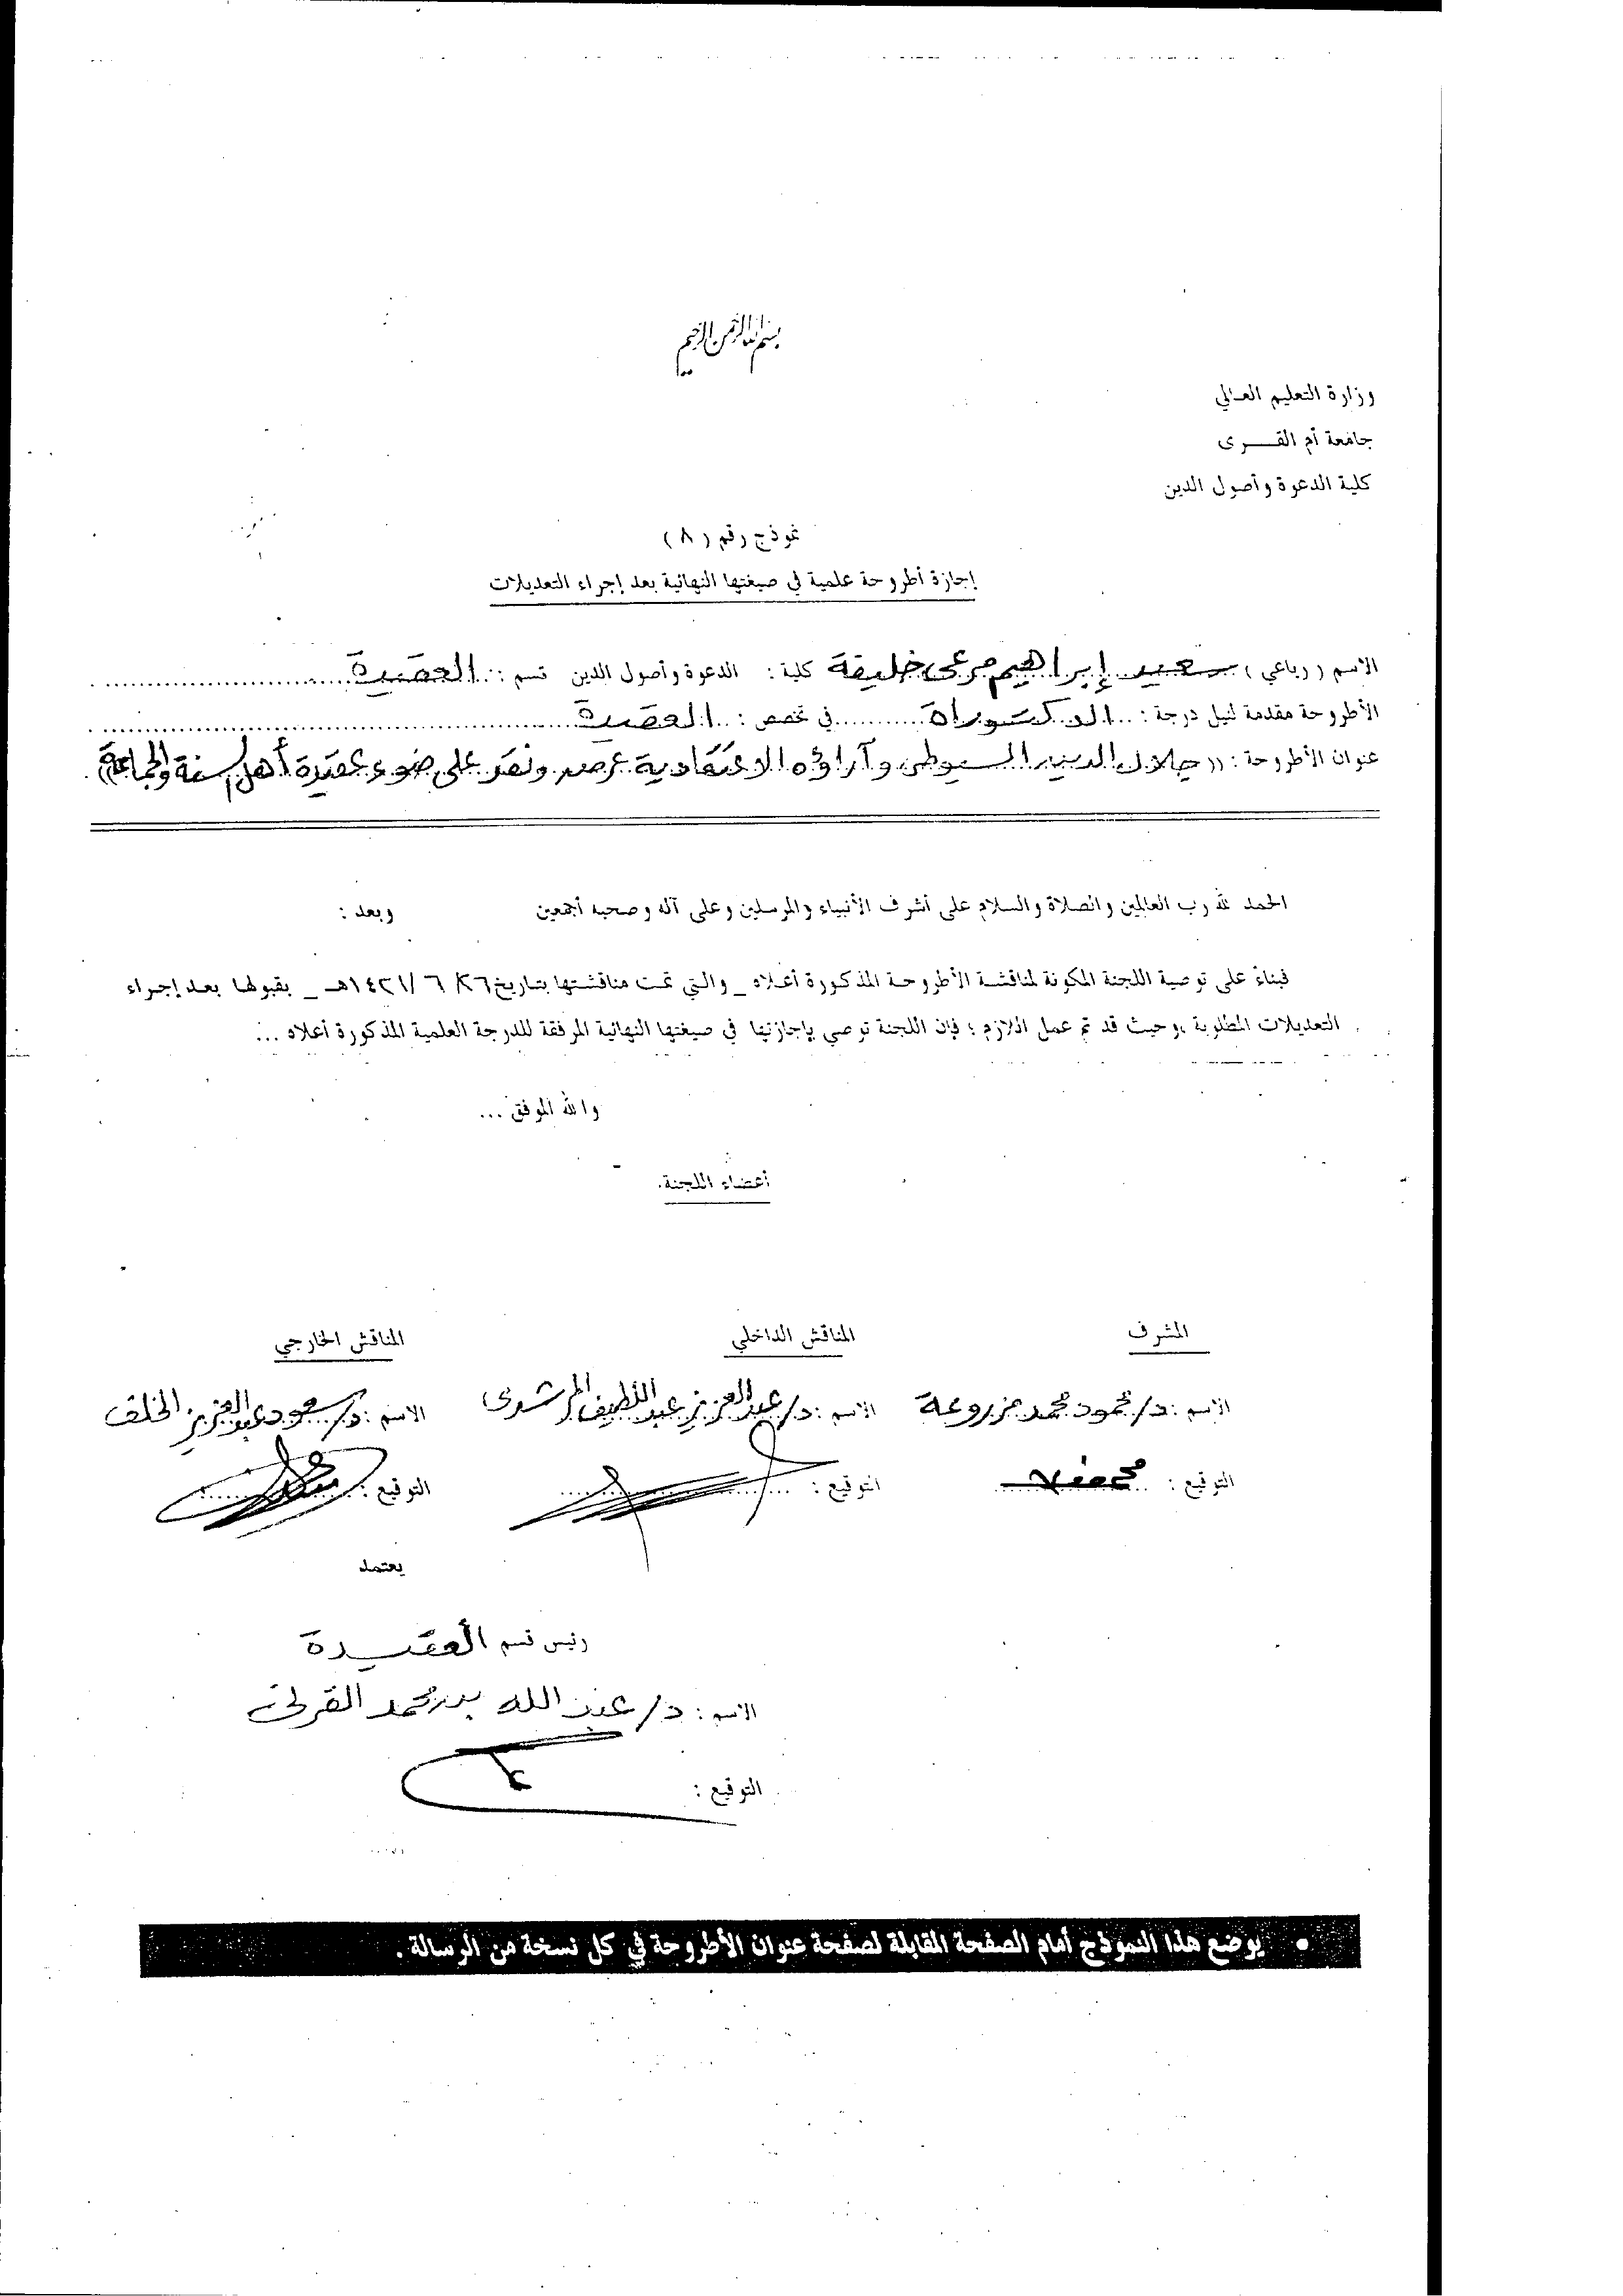 بسم الله الرحمن الرحيم
وزارة التعليم العالي
جامعة أم القــــرى
كلية الدعوة وأصول الدين
نموذج رقم ( ٨ )
إجازة أطروحة علمية في صيغتها النهائية بعد إجراء التعديلات
الاسم ( رباعي ) سعيد إبراهيم مرعي خليفة كلية : الدعوة وأصول الدين قسم : العقيدة
الأطروحة مقدمة لنيل درجة : الدكتوراة في تخصص : العقيدة
عنوان الأطروحة : (( جلال الدين السيوطي وآراؤه الاعتقادية عرض ونقد على ضوء عقيدة أهل السنة والجماعة ))
الحمد لله رب العالمين والصلاة والسلام على أشرف الأنبياء والمرسلين وعلى آله وصحبه أجمعين وبعد :
فبناءً على توصية اللجنة المكونة لمناقشة الأطروحة المذكورة أعلاه _ والتي تمت مناقشتها بتاريخ ٢٦/ ٦ /١٤٢١هـ _ بقبولها بعد إجراء
التعديلات المطلوبة ،وحيث قد تم عمل اللازم ؛ فإن اللجنة توصي بإجازتها في صيغتها النهائية المرفقة للدرجة العلمية المذكورة أعلاه ...
والله الموفق ...
أعضاء اللجنة.
المشرف المناقش الداخلي المناقش الخارجي
الاسم : د/ محمود محمد مزروعة الاسم : د/ عبد العزيز عبد اللطيف المرشدى الاسم : د/ سعود عبد العزيز الخلف
التوقيع : التوقيع : التوقيع :
يعتمد
رئيس قسم العقيدة
الاسم : د/ عبد الله بن محمد القرني
التوقيع :
• يوضع هذا النموذج أمام الصفحة المقابلة لصفحة عنوان الأطروحة في كل نسخة من الرسالة .